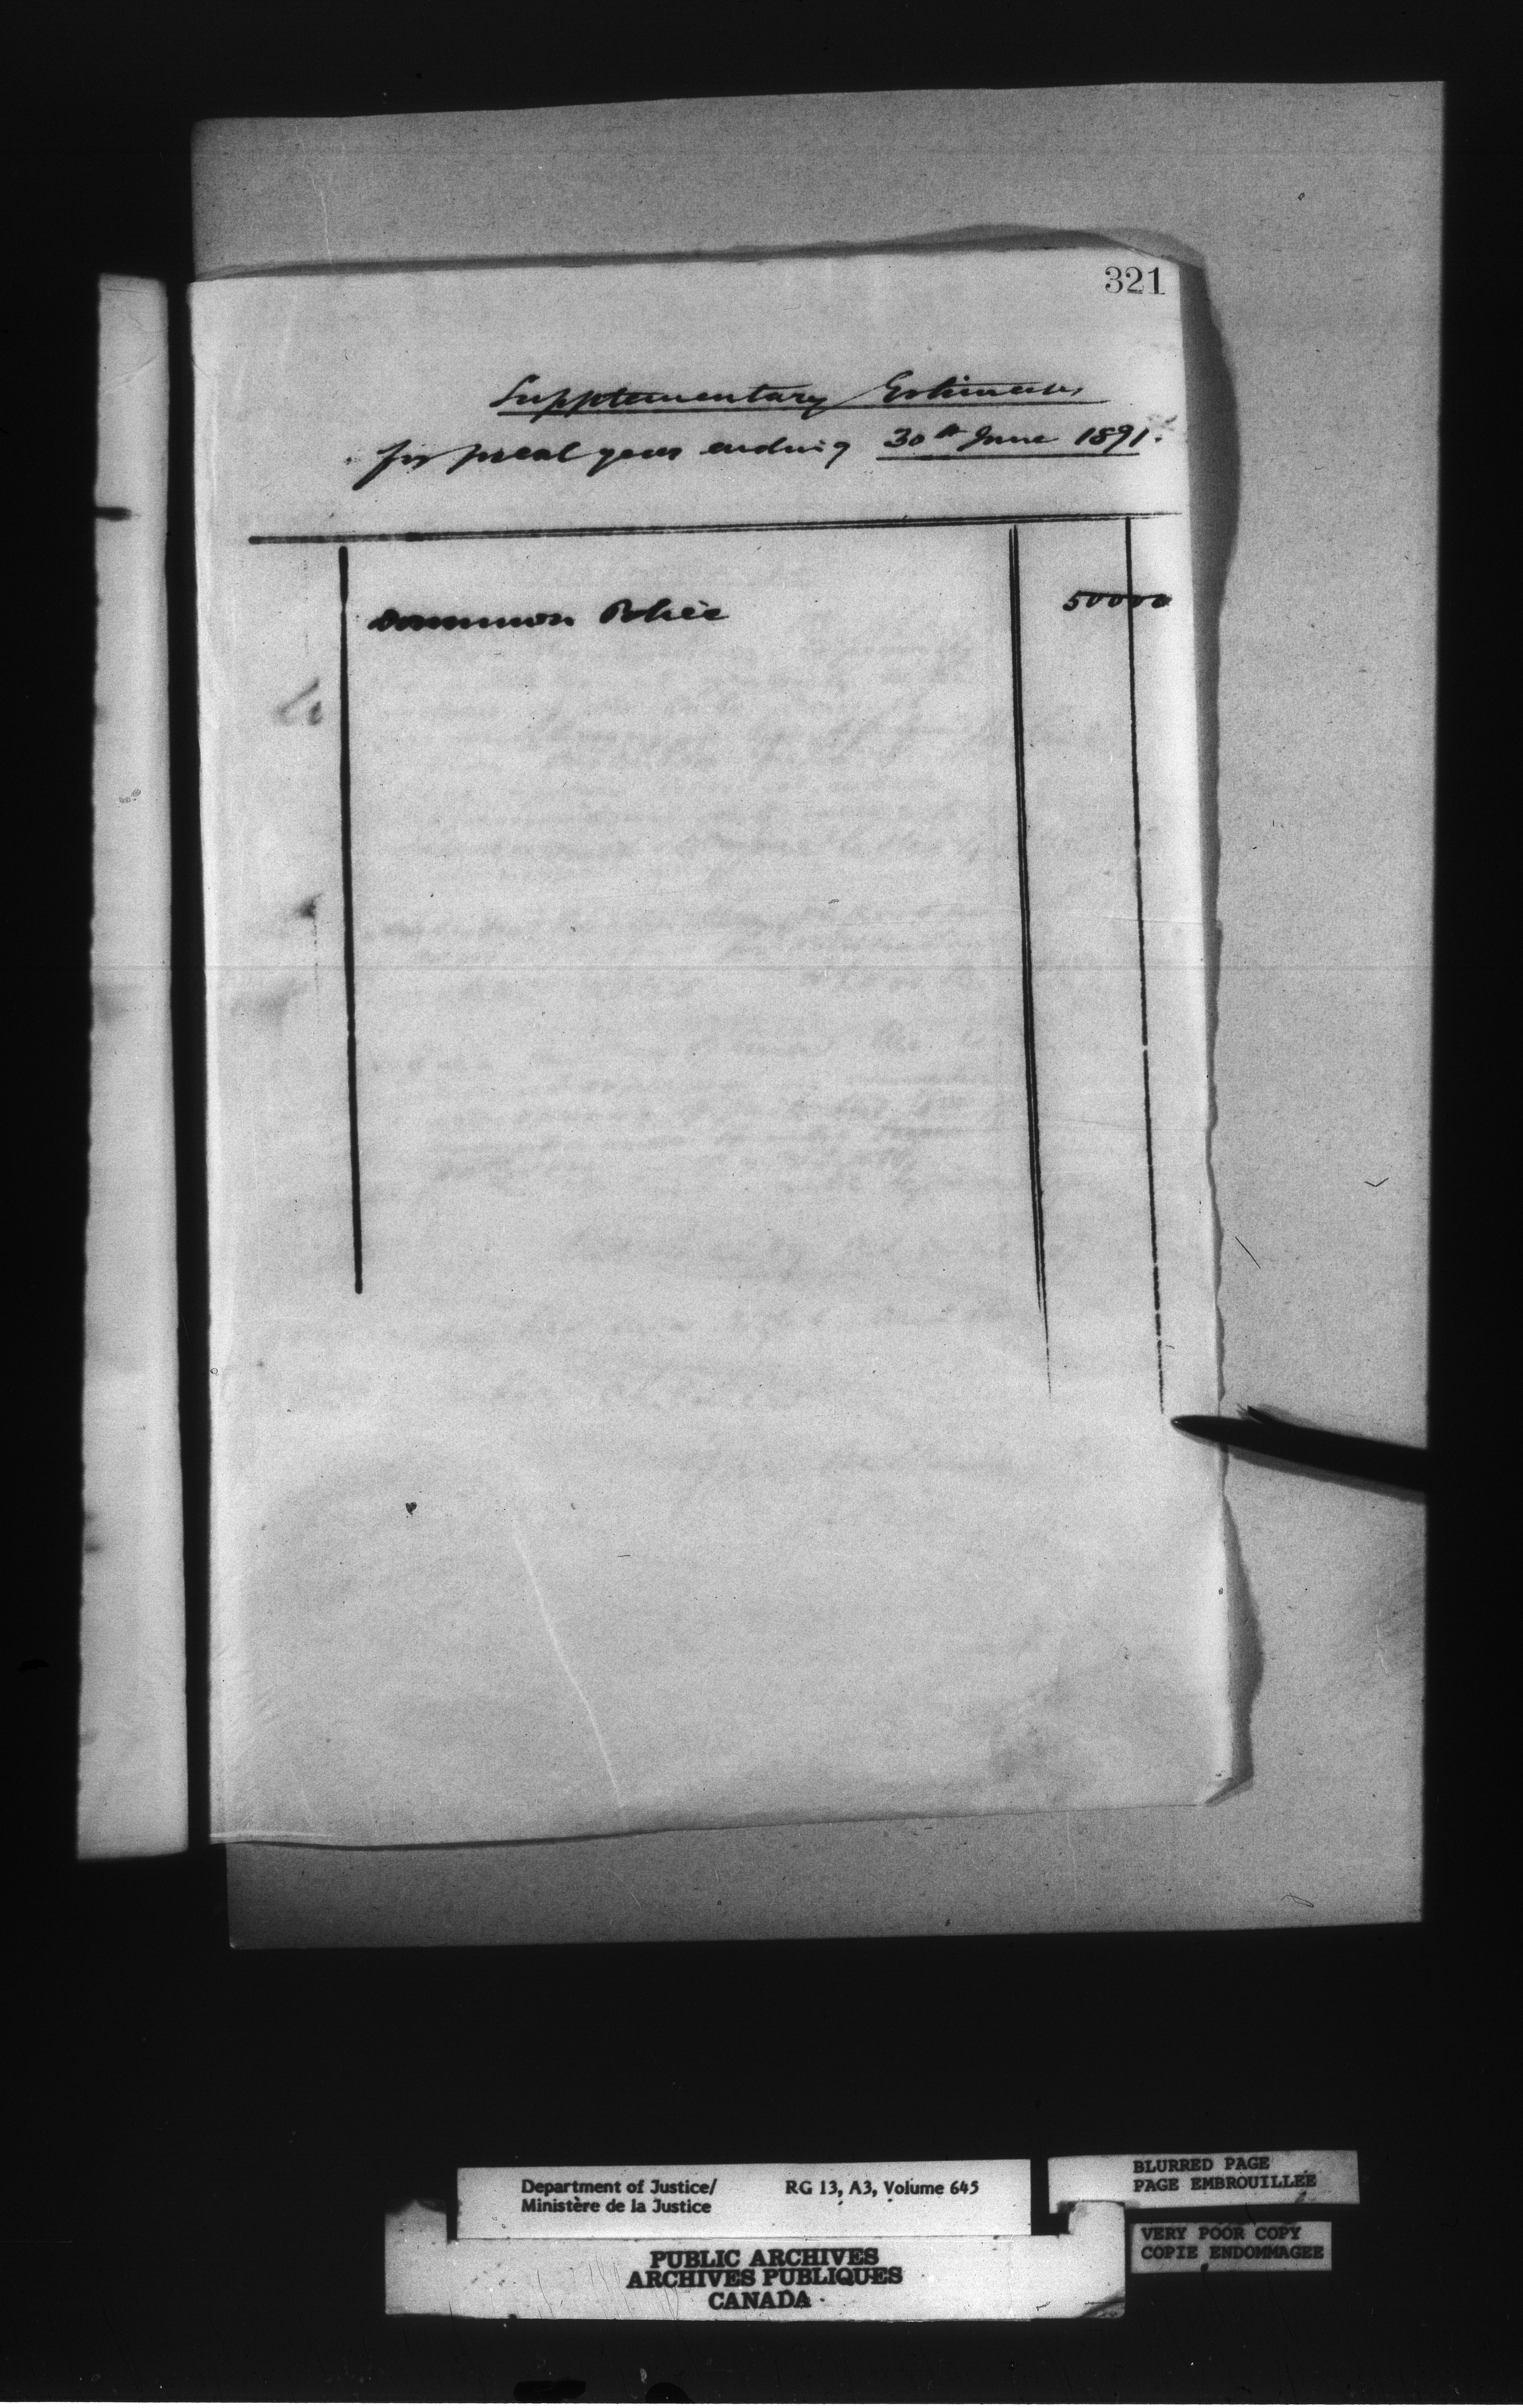 321
Supplementary Estimates
for fiscal year ending 30th June 1891.
Dominion Police 500 00
Department of Justice/ RG 13, A3, Volume 645
Ministère de la Justice
BLURRED PAGE
PAGE EMBROUILLEE
VERY POOR COPY
COPIE ENDOMMAGEE
PUBLIC ARCHIVES
ARCHIVES PUBLIQUES
CANADA